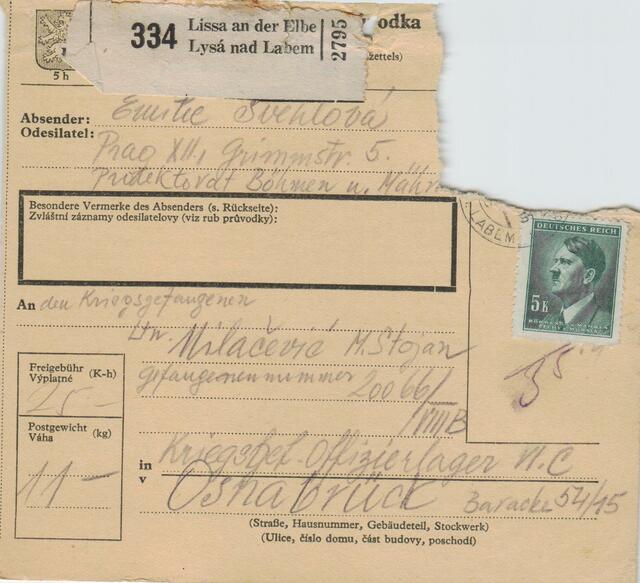 334
Lissa an der Elbe
Lysá nad Labem
2795
odka
zettels)
5 h
Absender:
Odesílatel:
Emilie Švehlová
Prag XII, Grimmstr. 5.
Protektorat Böhmen u. Mähr
Besondere Vermerke des Absenders (s. Rückseite):
Zvláštní záznamy odesilatelovy (viz rub průvodky):
LABEM
DEUTSCHES REICH
5 K
BÖHMEN U. MÄHREN
ČECHY A MORAVA
An den Kriegsgefangenen
Ltn. Milačević M. Stojan
Gefangenennummer 20066/
VIII B
Freigebühr (K-h)
Výplatné
25 -
Postgewicht (kg)
Váha
11 -
in
v
Kriegsgef. Offizierlager VI. C
Osnabrück Baracke 54/15
(Straße, Hausnummer, Gebäudeteil, Stockwerk)
(Ulice, číslo domu, část budovy, poschodí)